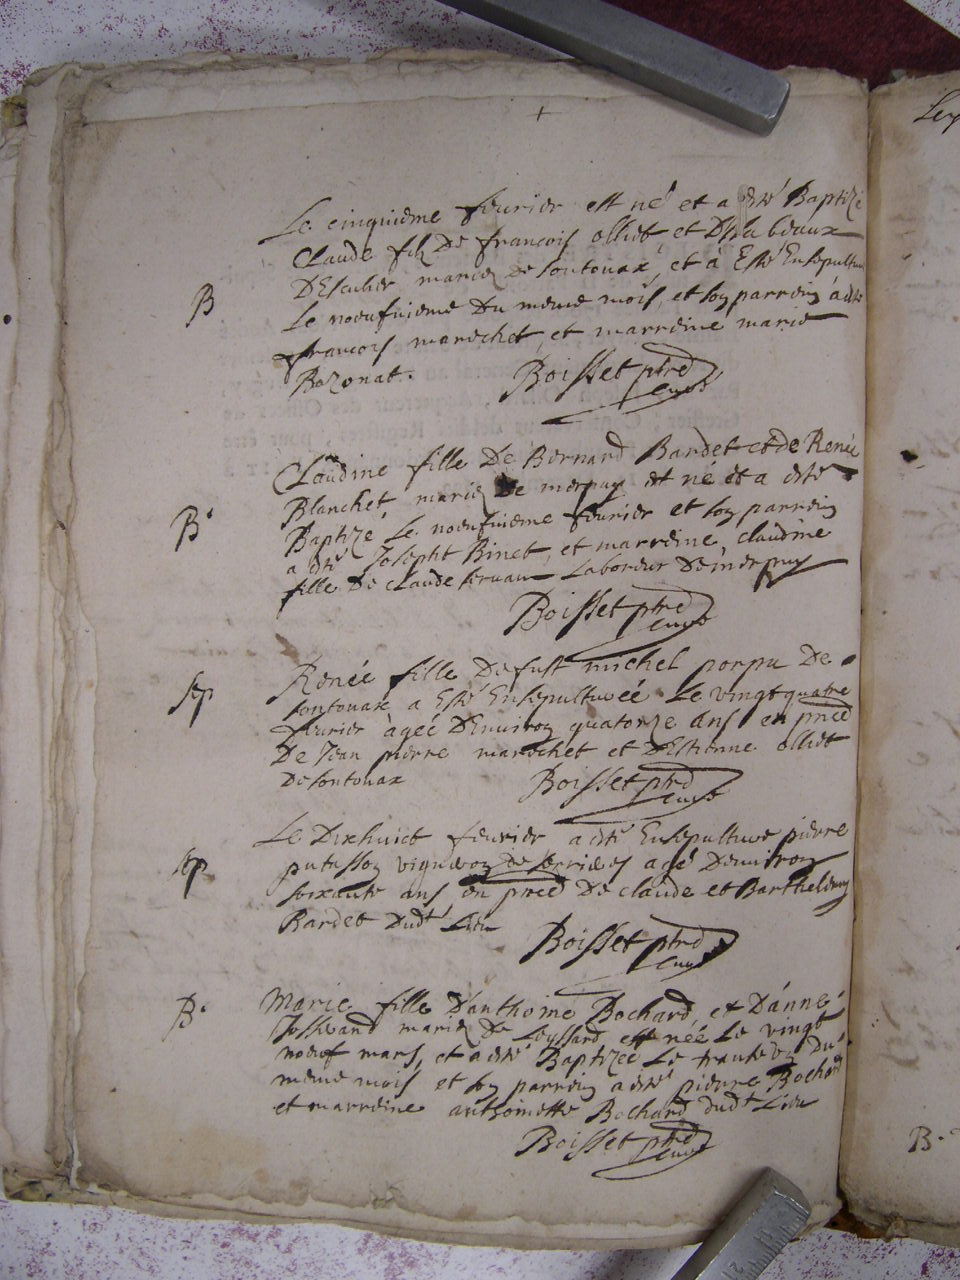 Le cinquieme feurier est né et a esté Baptizé
Claude filz De francois olliet et Dysabeaux
DEsculier mariez de Soutouax, et à Esté Ensepultu
B
Le noeufuieme Du meme mois, et son parrein à esté
francois marechet, et marreine marie
Bozonat.
Boisset ptre
curé
Claudine fille De Bernard Bardet et de Renée
Blanchet mariez De merpuy est né et a esté
B
Baptizé Le noeufuieme feurier et son parrein
a esté Joseptt Binet, et marreine claudine
fille De claude seruau Laboreur Demerpuy
Boisset ptre
curé
Renée fille Defust michel porpu De
sep
Sontouax a Esté Ensepultureé Le vingt quatre
feurier àgeé Denuiron quatorze ans en pnce
De Jean pierre marechet et DEstienne olliet
De Sontouax
Boisset ptre
curé
Le Dixhuict feurier a esté Ensepulture pierre
sep
putusson vigneron de serrieres agé Denuiron
soixante ans en pnce De claude et Barthelemy
Bardet Dudt Lieu
Boisset ptre
curé
B.
Marie fille Danthoine Bochard et Danne
mariez De Leyssard est née Le vingt
noeuf mars, et a esté Baptizeé Le trante un Du
meme mois et son parrein a esté pierre Bochard
et marreine anthoinette Bochard dudt Lieu
Boisset ptre
curé
Ley
B.